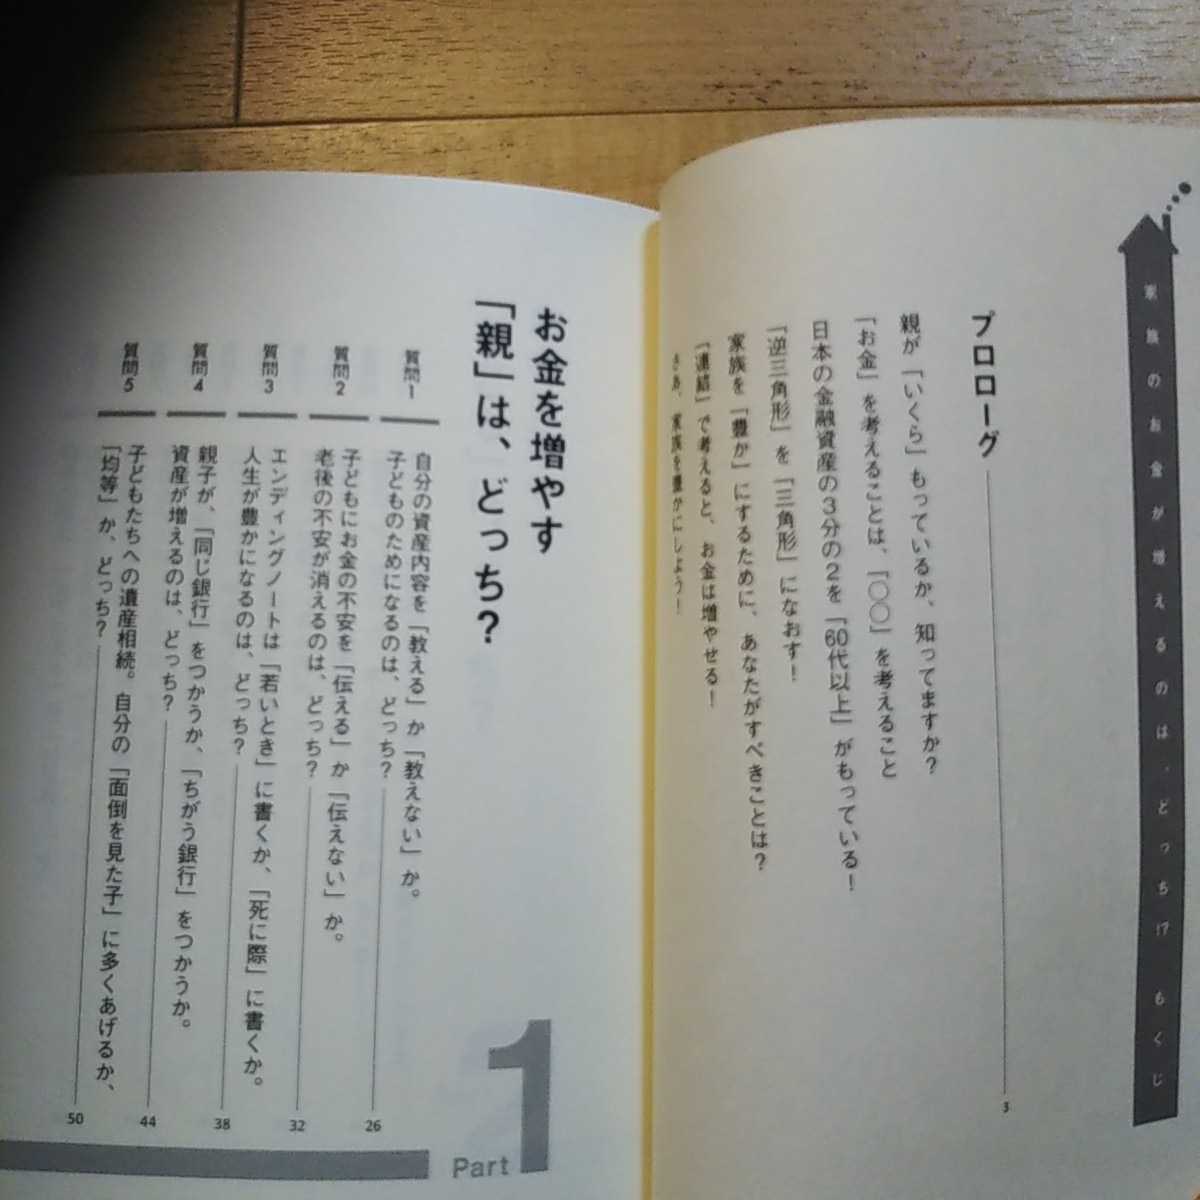 家族のお金が増えるのは、どっち!? もくじ
プロローグ 3
親が「いくら」もっているか、知ってますか?
「お金」を考えることは、「○○」を考えること
日本の金融資産の3分の2を「60代以上」がもっている!
「逆三角形」を「三角形」になおす!
家族を「豊か」にするために、あなたがすべきことは?
「連結」で考えると、お金は増やせる!
さあ、家族を豊かにしよう!
Part 1
お金を増やす
「親」は、どっち?
質問1
自分の資産内容を「教える」か「教えない」か。
子どものためになるのは、どっち? 26
質問2
子どもにお金の不安を「伝える」か「伝えない」か。
老後の不安が消えるのは、どっち? 32
質問3
エンディングノートは「若いとき」に書くか、「死に際」に書くか。
人生が豊かになるのは、どっち? 38
質問4
親子が、「同じ銀行」をつかうか、「ちがう銀行」をつかうか。
資産が増えるのは、どっち? 44
質問5
子どもたちへの遺産相続。自分の「面倒を見た子」に多くあげるか、
「均等」か、どっち? 50